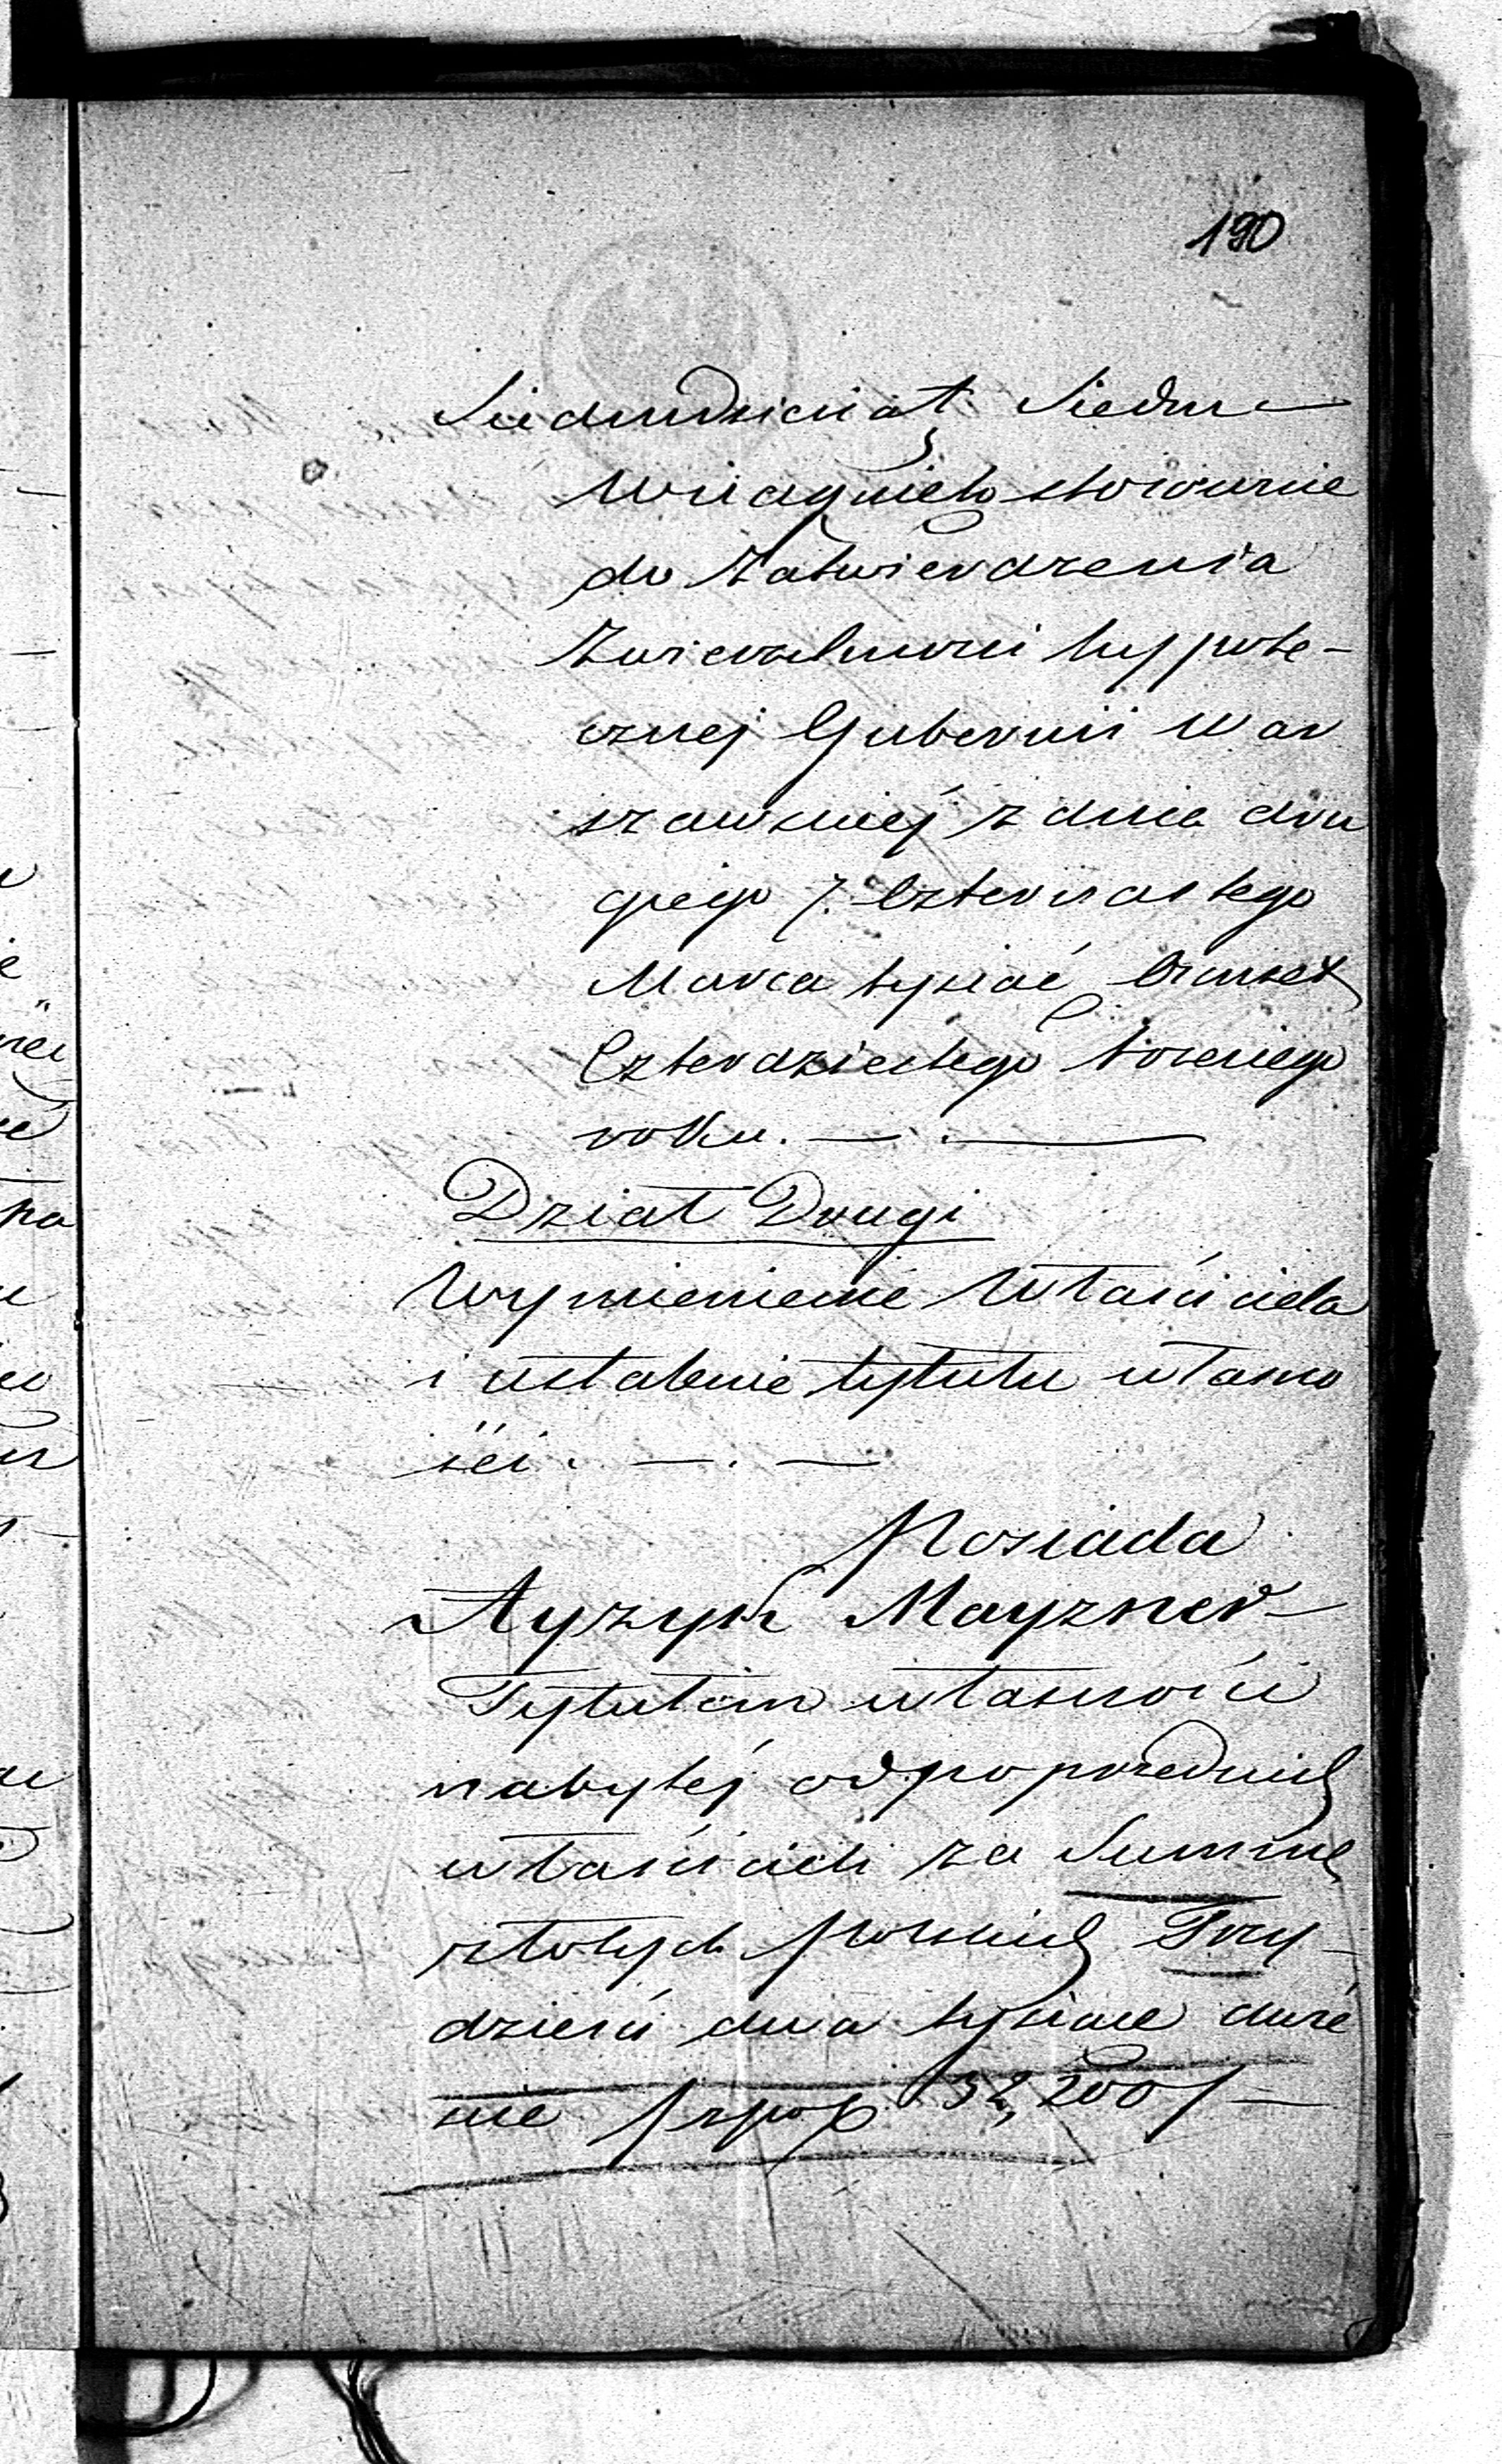 190
Siedmdziesiąt Siedm —
Wciągnięto stosownie
do Zatwierdzenia
Zwierzchności hyppote-
cznej Gubernii War
szawskiej z dnia dru
giego / Czternastego
Marca tysiąc Ośmset
Czterdziestego ósmego
roku. — . —
Dział Drugi
Wymienienie Właściciela
i ustalenie tytułu własno
ści . — . —
Posiada
Ayzyk Mayzner —
Tytułem własności
nabytéj od poprzednich
właścicieli za Summę
złotych polskich Trzy-
dzieści dwa tysiące dwie
ście 32,200 / —